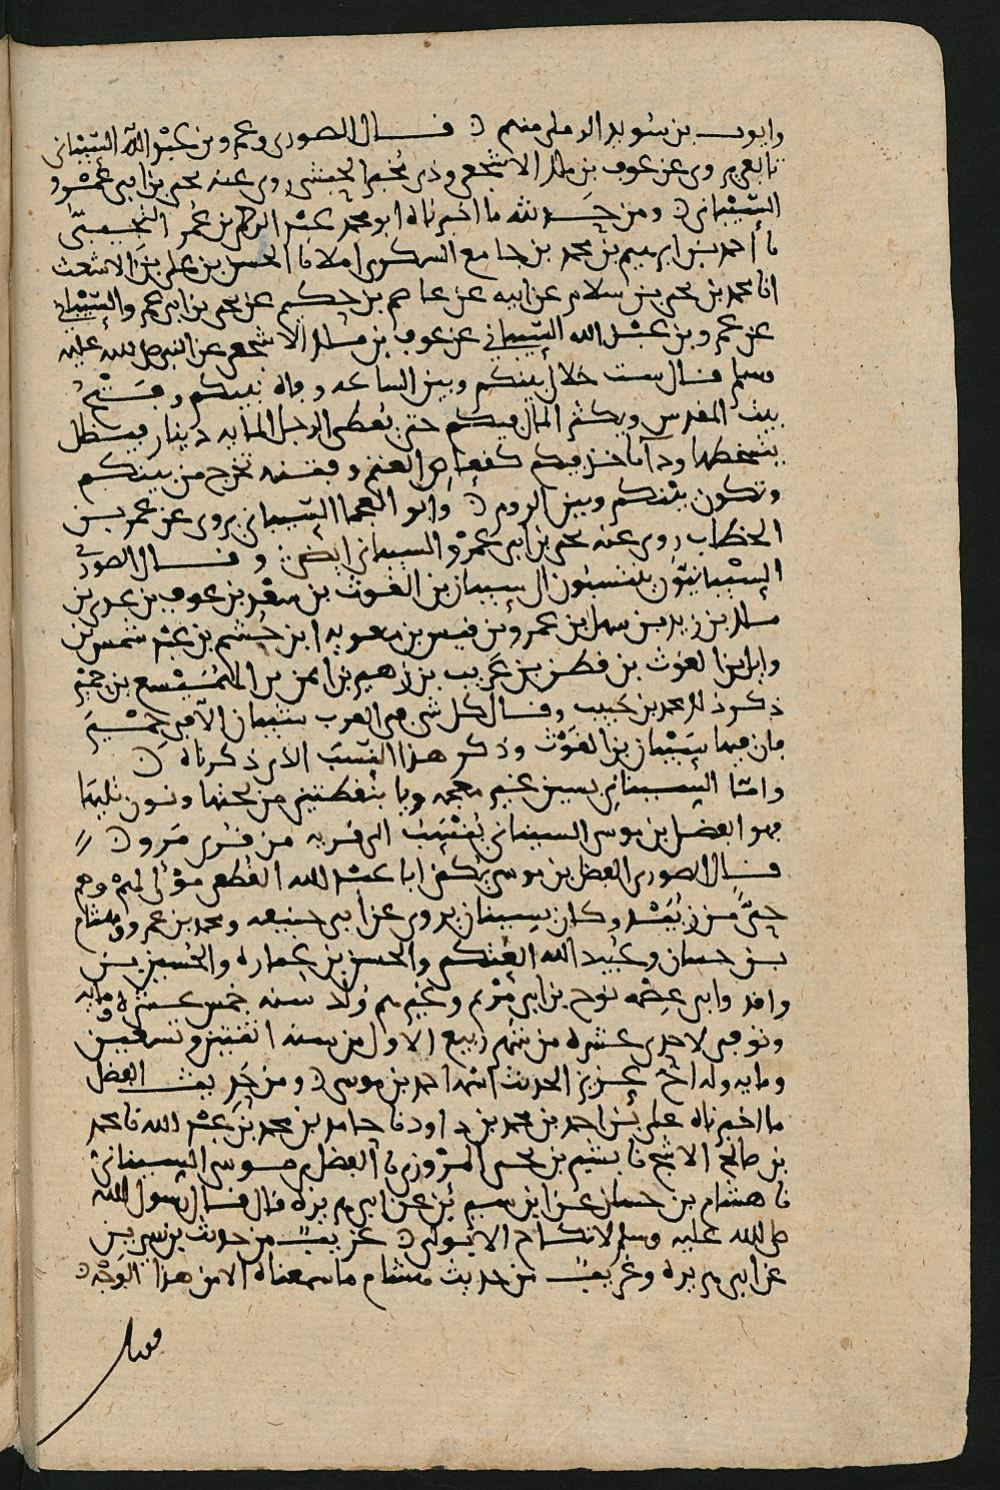 وايوب بن سويد الرملي منهم ۞ قال الصوري وعمرو بن عبد الله السيباني
تابعي روى عن عوف بن ملك الاشجعي وذي مخبر الحبشي روى عنه يحيى بن ابي عمرو
السيباني ۞ ومن حديثه ما اخبرناه ابو محمد عبد الرحمن بن عمر التجيبي
نا احمد بن ابرهيم بن محمد بن جامع السكري املا نا الحسن بن علي بن الاشعث
انا محمد بن يحيى بن سلام عن ابيه عن عاصم بن حكيم عن يحيى بن ابي عمرو السيباني
عن عمرو بن عبد الله السيباني عن عوف بن ملك الاشجعي عن النبي صلى الله عليه
وسلم قال ست خلال بينكم وبين الساعه وفاه نبيكم وفتح
بيت المقدس ويكثر المال فيكم حتى يعطى الرجل المايه دينار فيظل
يتسخطها ودا ياخذ فيكم كقعاص الغنم وفتنه تخرج من بينكم
وتكون بينكم وبين الروم ۞ وابو العجما السيباني يروي عن عمر بن
الخطاب روى عنه يحيى بن ابي عمرو السيباني ايضا ۞ وقال الصوري
السيبانيون ينتسبون الى سيبان بن الغوث بن سعد بن عوف بن عدي بن
ملك بن زيد بن سهل بن عمرو بن قيس بن معويه ابن جشم بن عبد شمس بن
وايل بن الغوث بن قطن بن عريب بن زهير بن ايمن بن الهميسع بن حمير
ذكر ذلك محمد بن حبيب وقال كل شي في العرب شيبان الا في حمير
فان فيها سيبان بن الغوث وذكر هذا النسب الذي ذكرناه ۞
واما السيناني بسين غير معجمه ويا بنقطتين من تحتها ونون تليها
فهو الفضل بن موسى السيناني ينسب الى قريه من قرى مرو ۞
قال الصوري الفضل بن موسى يكنى ابا عبد الله القطيعي مولى لهم وهم
حي من زبيد وكان بسينان يروي عن ابي حنيفه ومحمد بن عمرو وهشام
بن حسان وعبيد الله العتكي والحسن بن عماره والحسين بن
واقد وابي عصمه نوح بن ابي مريم وغيرهم ولد سنه خمس عشره ومايه
وتوفي لاحدى عشره من شهر ربيع الاول من سنه اثنتين وتسعين
ومايه وله اخ عزيز الحديث اسمه احمد بن موسى ۞ ومن حديث الفضل
ما اخبرناه علي بن احمد بن محمد بن داود نا حامد بن محمد بن عبد الله نا محمد
بن صالح الاشج نا بشر بن يحيى المروزي نا الفضل بن موسى السيناني
نا هشام بن حسان عن ابن سيرين عن ابي هريره قال قال رسول الله
صلى الله عليه وسلم لا نكاح الا بولي ۞ غريب من حديث بن سيرين
عن ابي هريره وغريب من حديث هشام ما سمعناه الا من هذا الوجه ۞